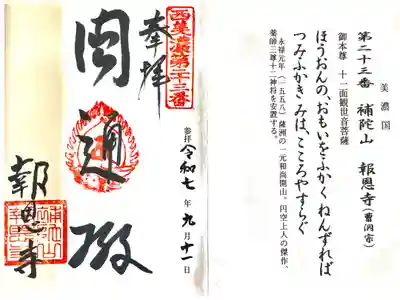 美濃国
第二十三番 補陀山 報恩寺(曹洞宗)
御本尊 十一面観世音菩薩
ほうおんの、おもいをふかくねんずれば
つみふかきみは、こころやすらぐ
永禄元年(一五五八)薩洲の一元和尚開山。円空上人の傑作、
薬師三尊十二神将を安置する。
西美濃第二十三番
奉拝
圓通殿
参拝 令和七年九月十一日
報恩寺